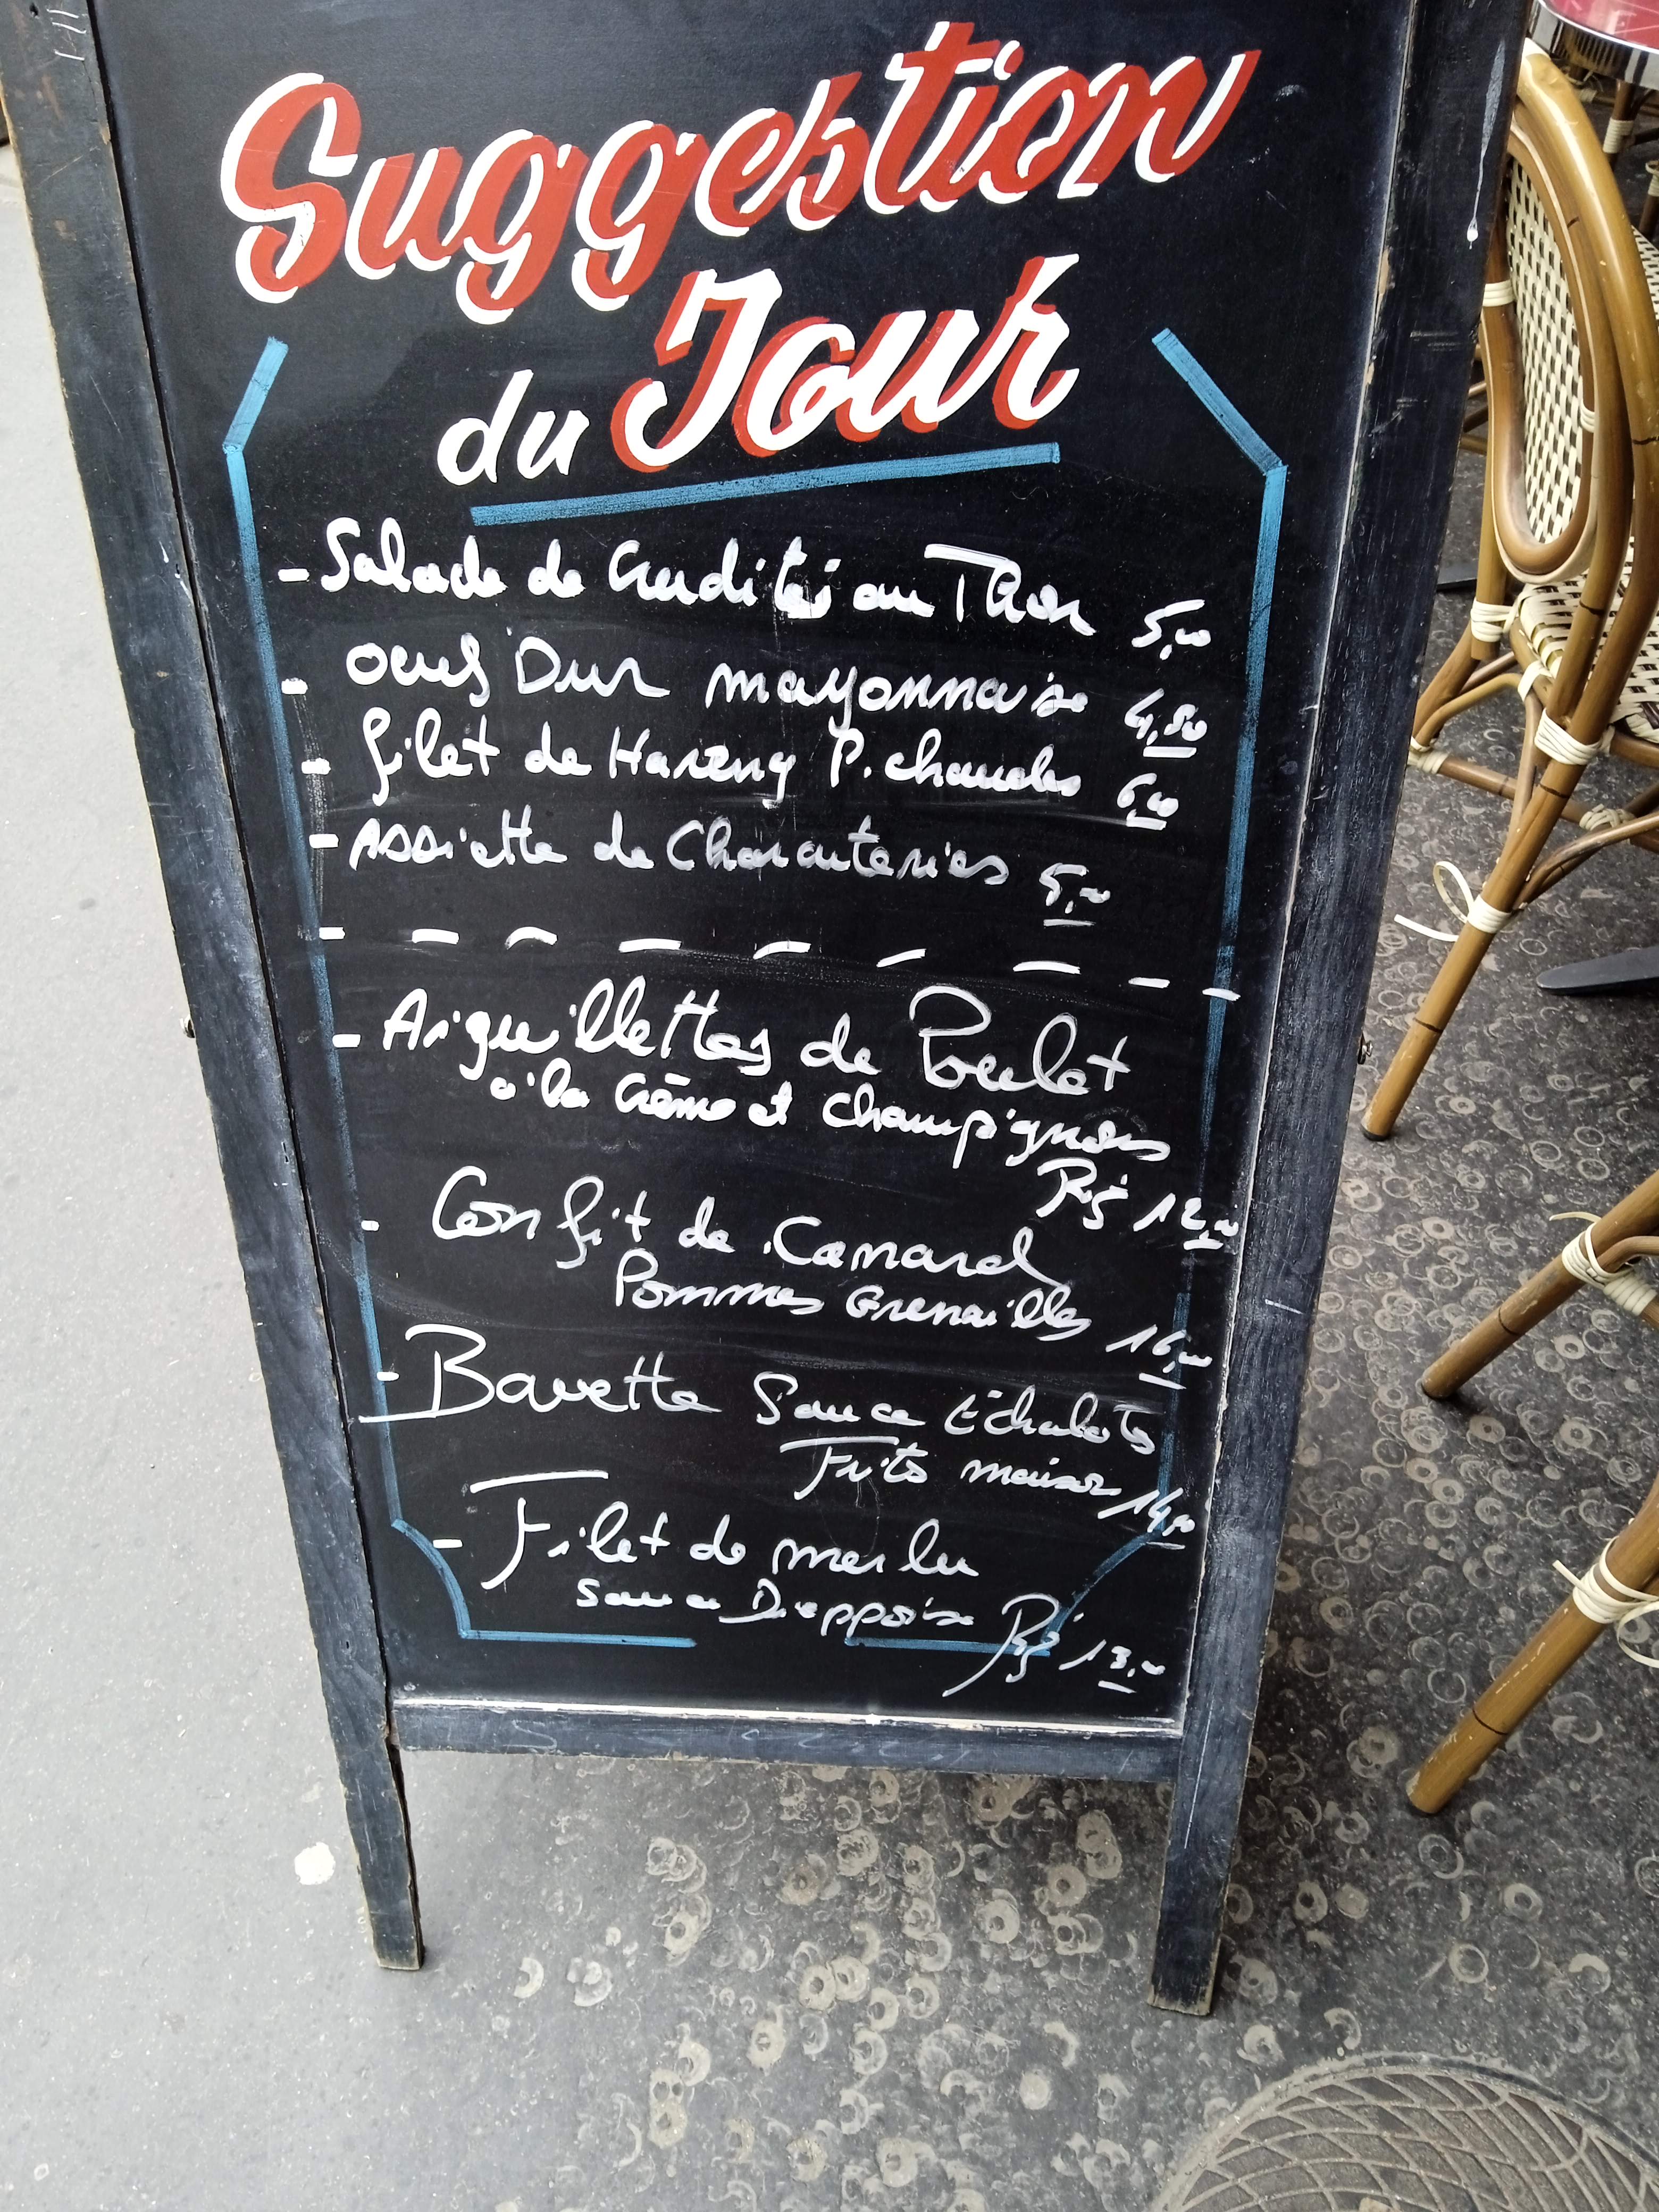 Suggestion
du Jour
- Salade de Crudités au Thon 5,00
- oeuf Dur mayonnaise 4,80
- filet de Hareng P. chaudes 6,00
- Assiette de Charcuteries 5,00
- Aiguillettes de Poulet
à la Crème et champignons
Riz 12,00
- Confit de Canard
Pommes Grenailles 16,00
- Bavette Sauce Echalots
Frits maison 14,00
- Filet de merlu
sauce Dieppoise Riz 13,00